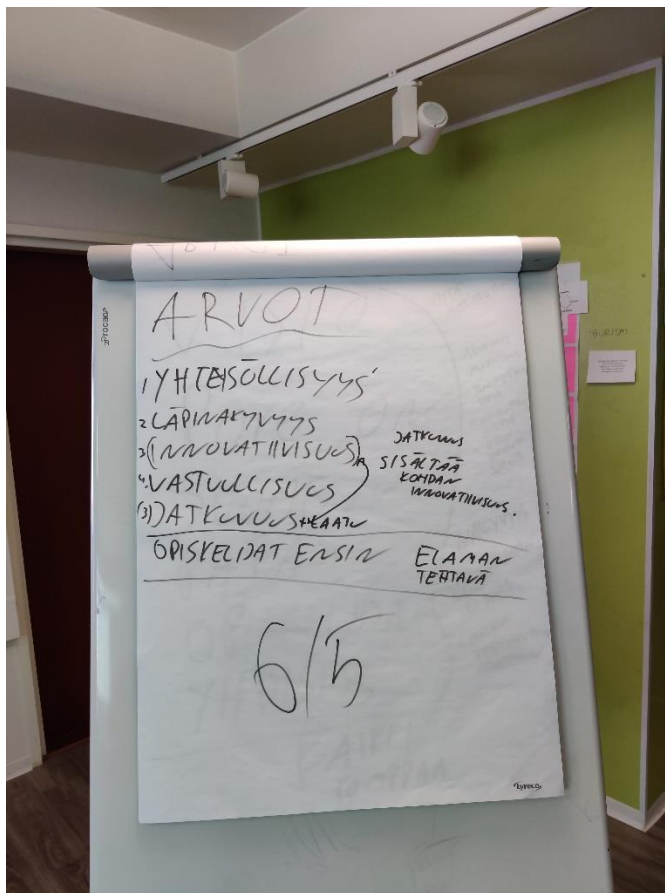 ARVOT
1. YHTEISÖLLISYYS
2 LÄPINÄKYVYYS
3 (INNOVATIIVISUUS)
4. VASTUULLISUUS
(3) JATKUVUUS + LAATU
JATKUVUUS
SISÄLTÄÄ
KOHDAN
INNOVATIIVISUUS.
OPISKELIJAT ENSIN
ELÄMÄN
TEHTÄVÄ
6/5